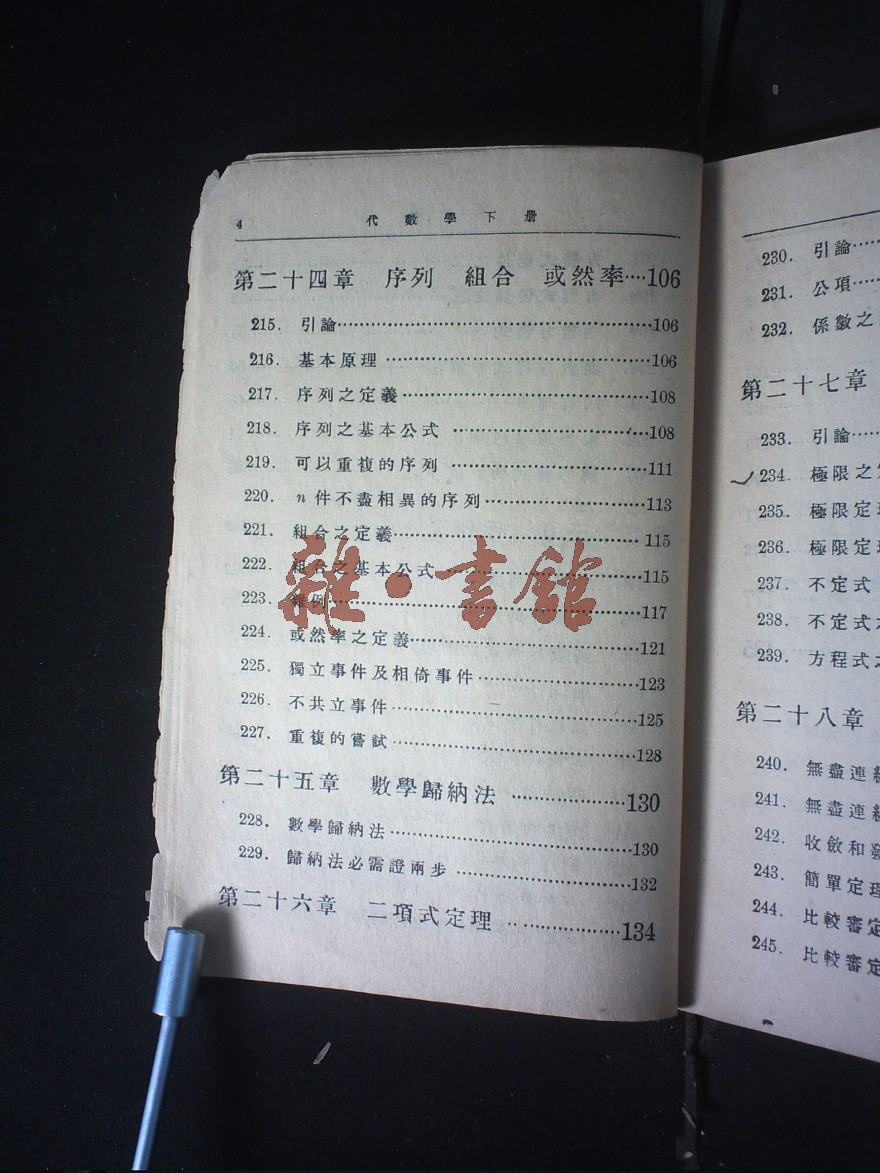 4 代數學下册
第二十四章 序列 組合 或然率····106
215. 引論····106
216. 基本原理····106
217. 序列之定義····108
218. 序列之基本公式····108
219. 可以重複的序列····111
220. n 件不盡相異的序列····113
221. 組合之定義····115
222. 組合之基本公式····115
223. 雜例····117
224. 或然率之定義····121
225. 獨立事件及相倚事件····123
226. 不共立事件····125
227. 重複的嘗試····128
第二十五章 數學歸納法····130
228. 數學歸納法····130
229. 歸納法必需證兩步····132
第二十六章 二項式定理····134
雜·書館
230. 引論····
231. 公項····
232. 係數之
第二十七章
233. 引論····
234. 極限之
235. 極限定
236. 極限定
237. 不定式
238. 不定式
239. 方程式之
第二十八章
240. 無盡連
241. 無盡連
242. 收斂和
243. 簡單定
244. 比較審定
245. 比較審定